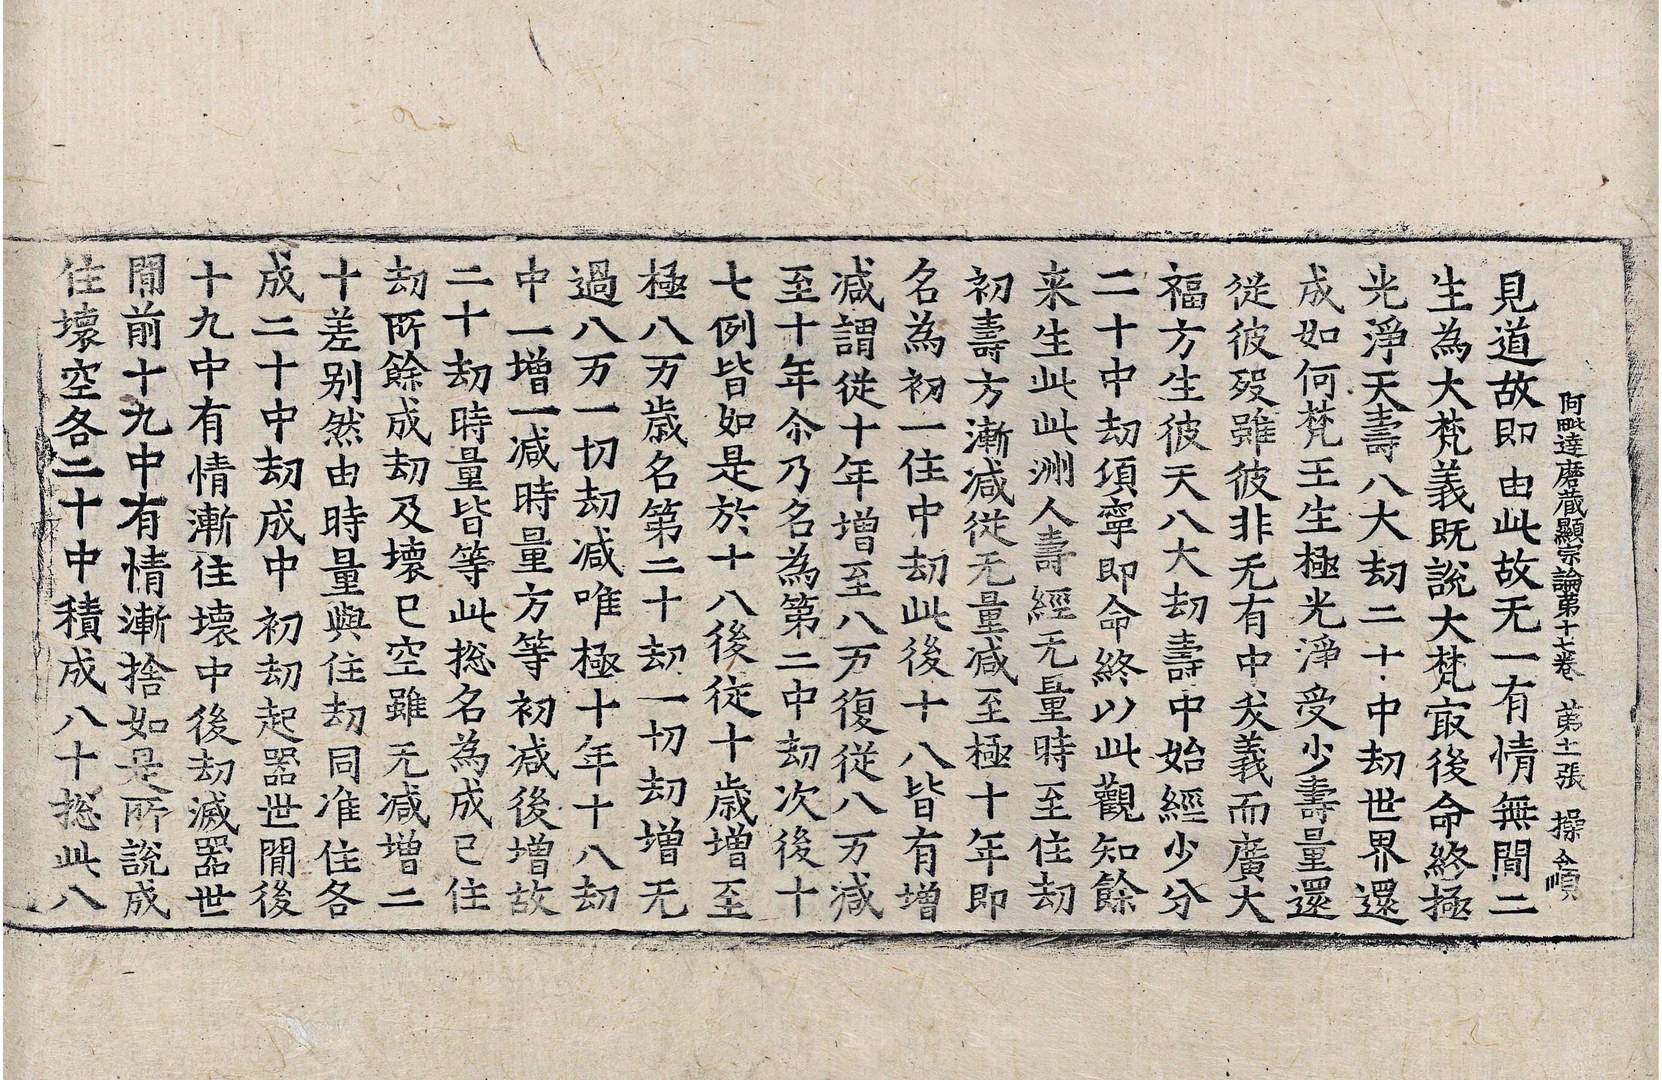 阿毗達磨藏顯宗論第十七卷　第十一張　操令㥧
見道故即由此故无一有情無間二
生為大梵義既說大梵㝡後命終極
光淨天壽八大劫二十中劫世界還
成如何梵王生極光淨受少壽量還
從彼歿雖彼非无有中夭義而廣大
福方生彼天八大劫壽中始經少分
二十中劫須寧即命終以此觀知餘
来生此此洲人壽經无量時至住劫
初壽方漸减從无量减至極十年即
名為初一住中劫此後十八皆有增
减謂從十年增至八万復從八万减
至十年尒乃名為第二中劫次後十
七例皆如是於十八後從十歲增至
極八万歲名第二十劫一切劫增无
過八万一切劫减唯極十年十八劫
中一增一减時量方等初减後增故
二十劫時量皆等此捴名為成已住
劫所餘成劫及壞已空雖无减增二
十差别然由時量與住劫同准住各
成二十中劫成中初劫起器世間後
十九中有情漸住壞中後劫滅器世
間前十九中有情漸捨如是所說成
住壞空各二十中積成八十捴此八